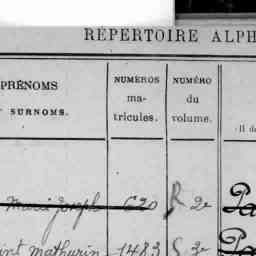 RÉPERTOIRE ALPH
PRÉNOMS
SURNOMS.
NUMÉROS
ma-
tricules.
NUMÉRO
du
volume.
Il de
Marie Joseph 620 R 2e Pa
int Mathurin 1483 S 3e Pa